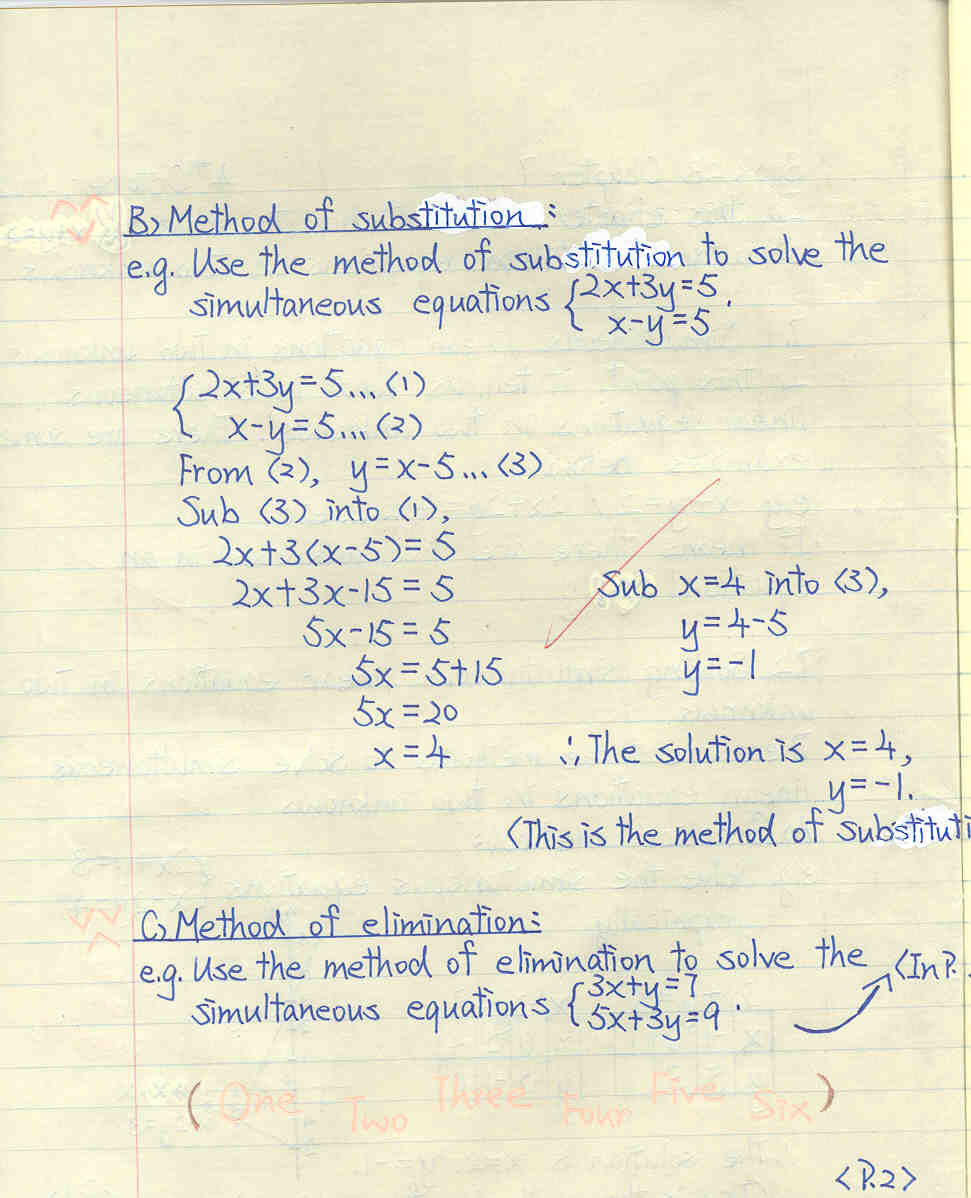 B) Method of substitution:
e.g. Use the method of substitution to solve the
simultaneous equations {2x+3y=5
x-y=5.
{2x+3y=5...(1)
x-y=5...(2)
From (2), y=x-5...(3)
Sub (3) into (1),
2x+3(x-5)=5
2x+3x-15=5
5x-15=5
5x=5+15
5x=20
x=4
Sub x=4 into (3),
y=4-5
y=-1
∴ The solution is x=4,
y=-1.
(This is the method of substituti
C) Method of elimination:
e.g. Use the method of elimination to solve the
simultaneous equations {3x+y=7
5x+3y=9.
(In P.
(One Two Three Four Five Six)
<P.2>